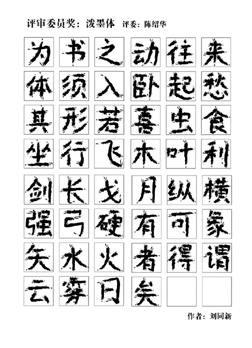 评审委员奖：泼墨体 评委：陈绍华
为书之动往来
体须入卧起愁
其形若喜虫食
坐行飞木叶利
剑长戈月纵横
强弓硬有可象
矢水火者得谓
云穿日矣
作者：刘同新